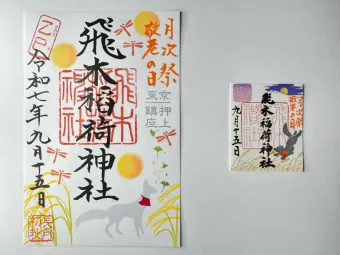 月次祭
敬老の日
東京
押上
鎮座
飛木稲荷神社
乙巳
令和七年九月十五日
長月
初秋
月次祭
敬老の日
飛木稲荷神社
九月十五日